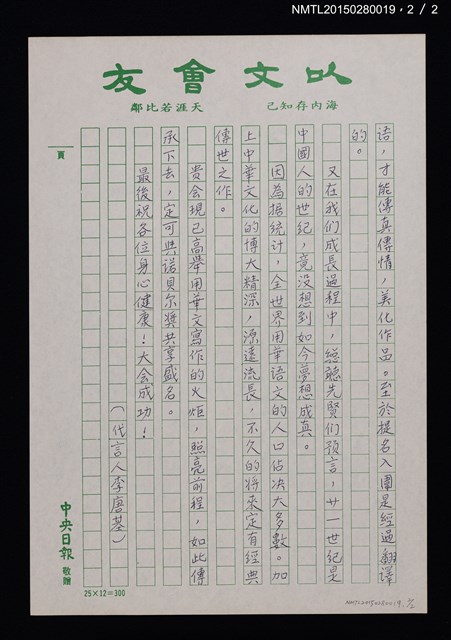 NMTL20150280019，2／2
以文會友
海內存知己　天涯若比鄰
語，才能傳真傳情，美化作品。至於提名入圍是經過翻譯
的。
又在我们成長過程中，總聽先賢们預言，廿一世紀是
中國人的世紀，竟没想到如今夢想成真。
因為据统计，全世界用華語文的人口佔决大多數。加
上中華文化的博大精深，源遠流長，不久的將來定有經典
傳世之作。
貴会現已高舉用華文寫作的火炬，照亮前程，如此傳
承下去，定可與诺貝尔獎共享盛名。
最後祝各位身心健康！大会成功！
（代言人李唐基）
頁
中央日報 敬贈
25×12＝300
NMTL20150280019. 2/2